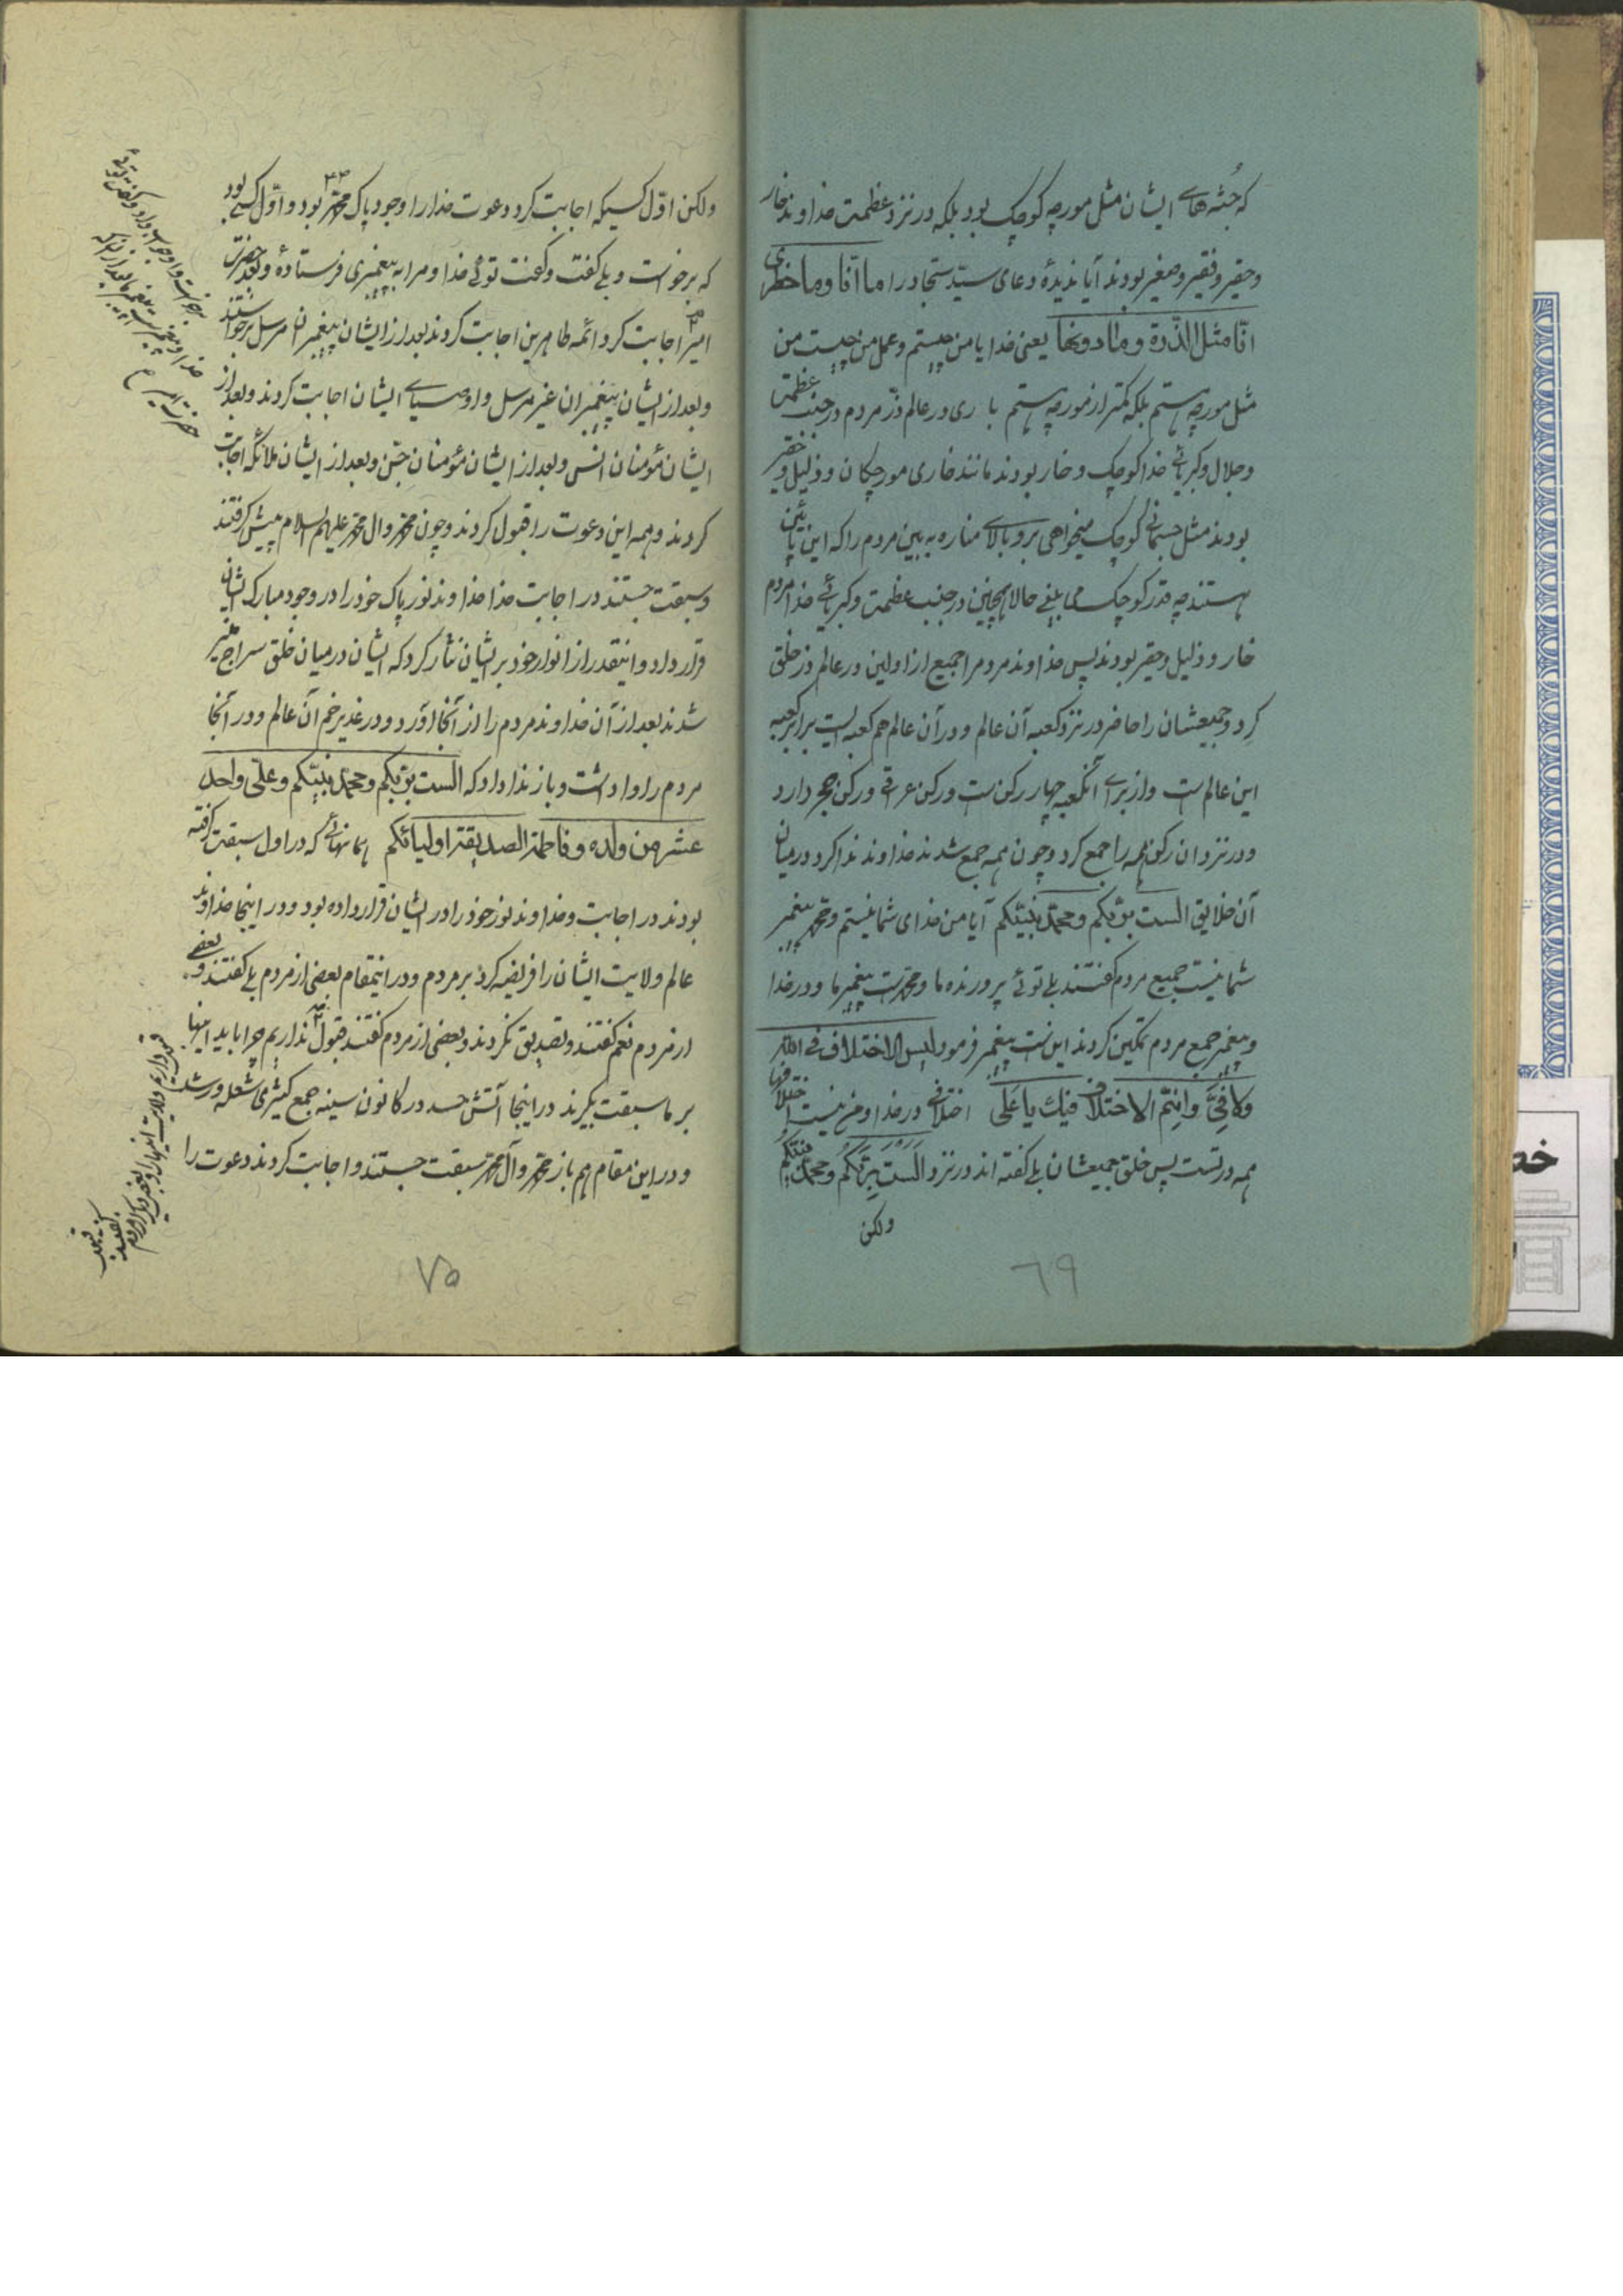 که جُثه‌های ایشان مثل مورچه کوچک بود بلکه در نزد عظمت خداوند خار
و حقیر و فقیر و صغیر بودند آیا ندیدهٔ دعای سید سجاد را ما انا وما خطری
انا مثل الذرة وما دونها یعنی خدایا من چیستم و عمل من چیست من
مثل مورچه هستم بلکه کمتر از مورچه هستم باری در عالم ذر مردم در جنب عظمت
و جلال و کبریائی خدا کوچک و خار بودند مانند خاری مورچکان و ذلیل و حقیر
بودند مثل جسمانی کوچک میخواهی برو بالای مناره به بین مردم را که این پائین
هستند چه قدر کوچک می بینی حالا همچنین در جنب عظمت و کبریائی خدا مردم
خار و ذلیل و حقیر بودند پس خداوند مردم را جمیع از اولین در عالم ذر خلق
کرد و جمیعشان را حاضر در نزد کعبه آن عالم و در آن عالم هم کعبه ایست برابر کعبه
این عالم است و از برای آنکعبه چهار رکن ست و رکن عرقی و رکن حجر دارد
و در نزد ان رکن همه را جمع کرد و چون همه جمع شدند خداوند ندا کرد در میان
آن خلایق الست بربکم ومحمد نبیکم آیا من خدای شما نیستم و محمد پیغمبر
شما نیست جمیع مردم گفتند بلی توئی پرورنده ما و محمد است پیغمبر ما و در خدا
و پیغمبر جمع مردم تمکین کردند این ست پیغمبر فرمود لیس الاختلاف فی الله
ولا فیَّ وانما الاختلاف فیك یا علی اختلافی در خدا و من نیست اختلافها
همه در تست پس خلق جمیعشان بلی گفته اند در نزد الست بربکم ومحمد نبیکم
ولکن
٦٩
ولکن اوّل کسیکه اجابت کرد دعوت خدا را وجود پاک محمد بود و اوّل کسی بود
که برخواست و بلی گفت و گفت توئی خدا و مرا به پیغمبری فرستادهٔ و بعد حضرت
امیر اجابت کرد و ائمه طاهرین اجابت کردند بعد از ایشان پیغمبران مرسل برخواستند
و بعد از ایشان پیغمبران غیر مرسل و اوصیای ایشان اجابت کردند و بعد از
ایشان مؤمنان انس و بعد از ایشان مؤمنان جن و بعد از ایشان ملائکه اجابت
کردند و همه این دعوت را قبول کردند و چون محمد و ال محمد علیهم السلام پیش گرفتند
و سبقت جستند در اجابت خدا خداوند نور پاک خود را در وجود مبارک ایشان
قرار داد و اینقدر از انوار خود بر ایشان نثار کرد که ایشان در میان خلق سراج منیر
شدند بعد از آن خداوند مردم را از آنجا آورد و در غدیر خم آن عالم و در آنجا
مردم را وا داشت و باز ندا داد که الست بربکم ومحمد نبیکم وعلی واحد
عشر من ولده وفاطمة الصدیقة اولیائکم همانهائی که در اول سبقت گرفته
بودند در اجابت و خداوند نور خود را در ایشان قرار داده بود و در اینجا خداوند
عالم ولایت ایشان را فریضه کرد بر مردم و در اینمقام بعضی از مردم بلی گفتند و بعضی
از مردم نعم گفتند و تصدیق نکردند و بعضی از مردم گفتند قبول نداریم چرا باید اینها
بر ما سبقت بگیرند در اینجا آتش حسد در کانون سینه جمع کثیری شعله ور شد
و در این مقام هم باز محمد و آل محمد سبقت جستند و اجابت کردند دعوت را
٧٥
خد